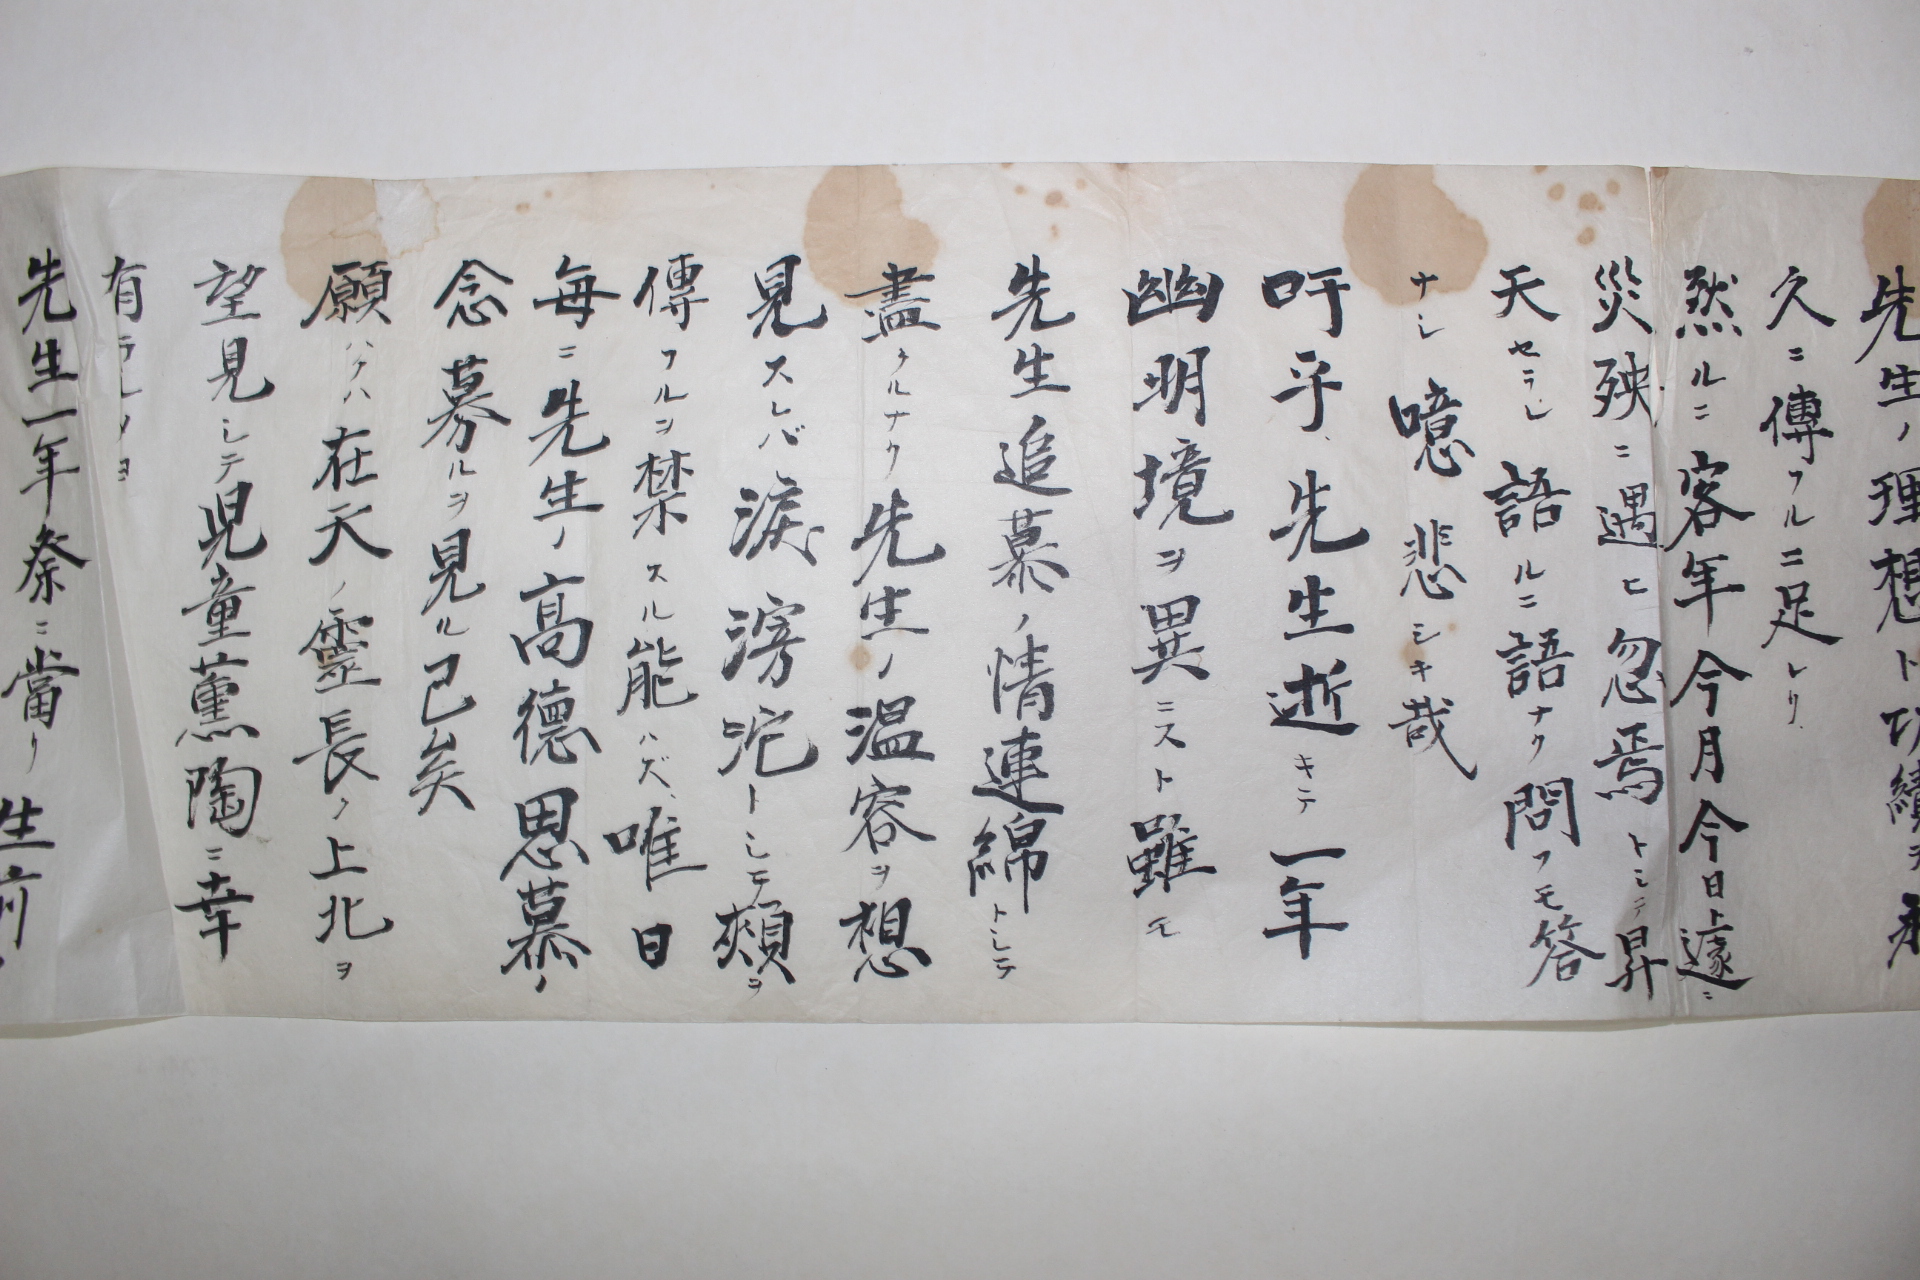 先生ノ理想ト功績ヲ永
久ニ傳フルニ足レリ
然ルニ客年今月今日遽ニ
災殃ニ遇ヒ忽焉トシテ昇
天セラレ語ルニ語ナク問フモ答
ナシ噫悲シキ哉
吁乎、先生逝キテ一年
幽明境ヲ異ニスト雖モ
先生追慕ノ情連綿トシテ
盡クルナク先生ノ温容ヲ想
見スレバ淚滂沱トシテ頰ヲ
傳フルヲ禁スル能ハズ、唯日
每ニ先生ノ高德思慕ノ
念募ルヲ見ル已矣
願ハクハ在天ノ靈長ク上北ヲ
望見シテ児童薫陶ニ幸
有ランノヨ
先生一年祭ニ當リ生前